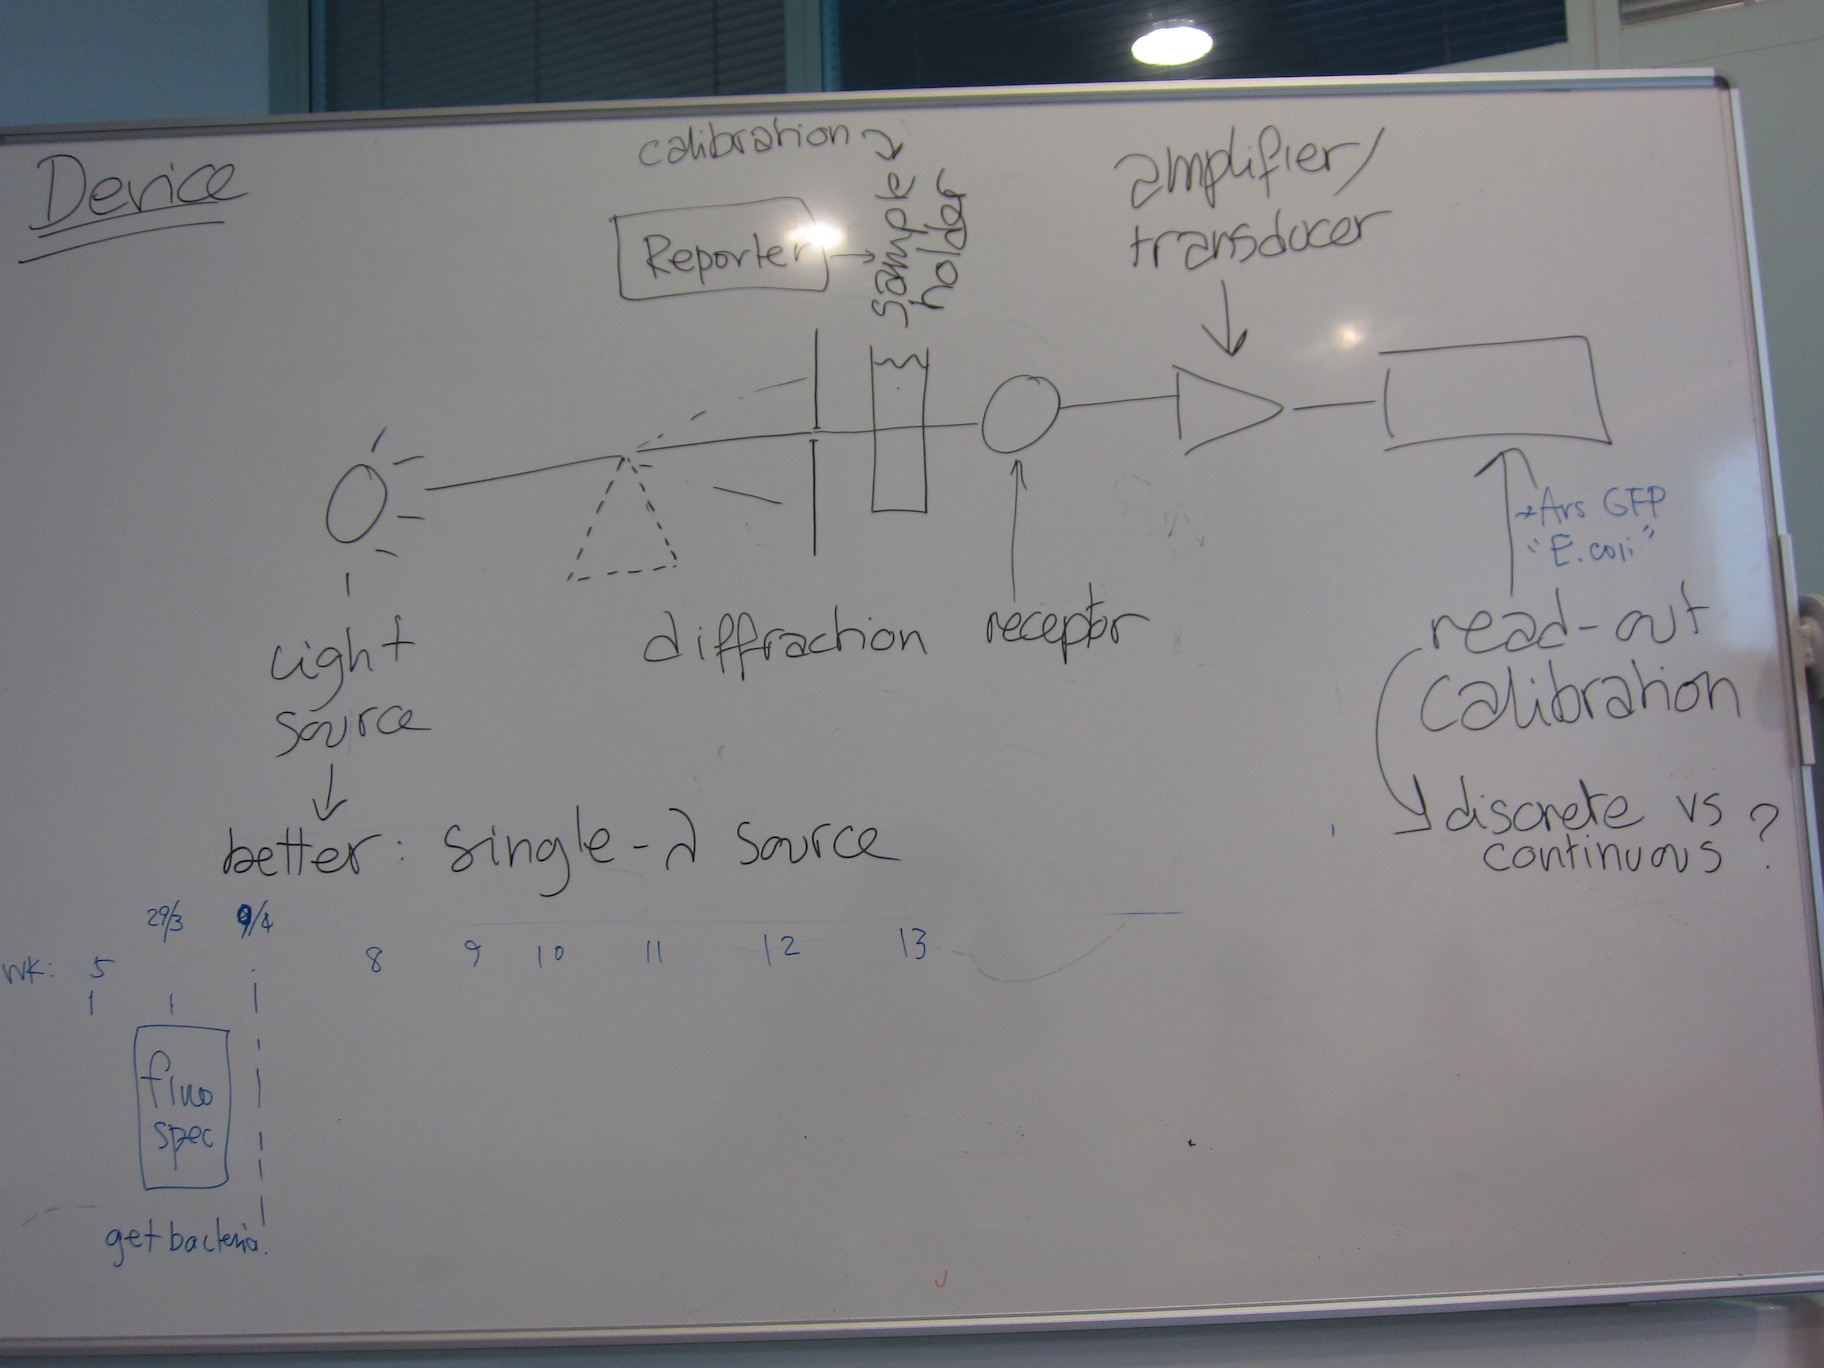 Device
calibration
Reporter
sample
holder
amplifier/
transducer
Ars GFP
"E.coli"
light
source
diffraction
receptor
read-out
calibration
better: single-λ source
discrete vs
continuous ?
29/3 9/4
wk: 5 8 9 10 11 12 13
fluo
spec
get bacteria.